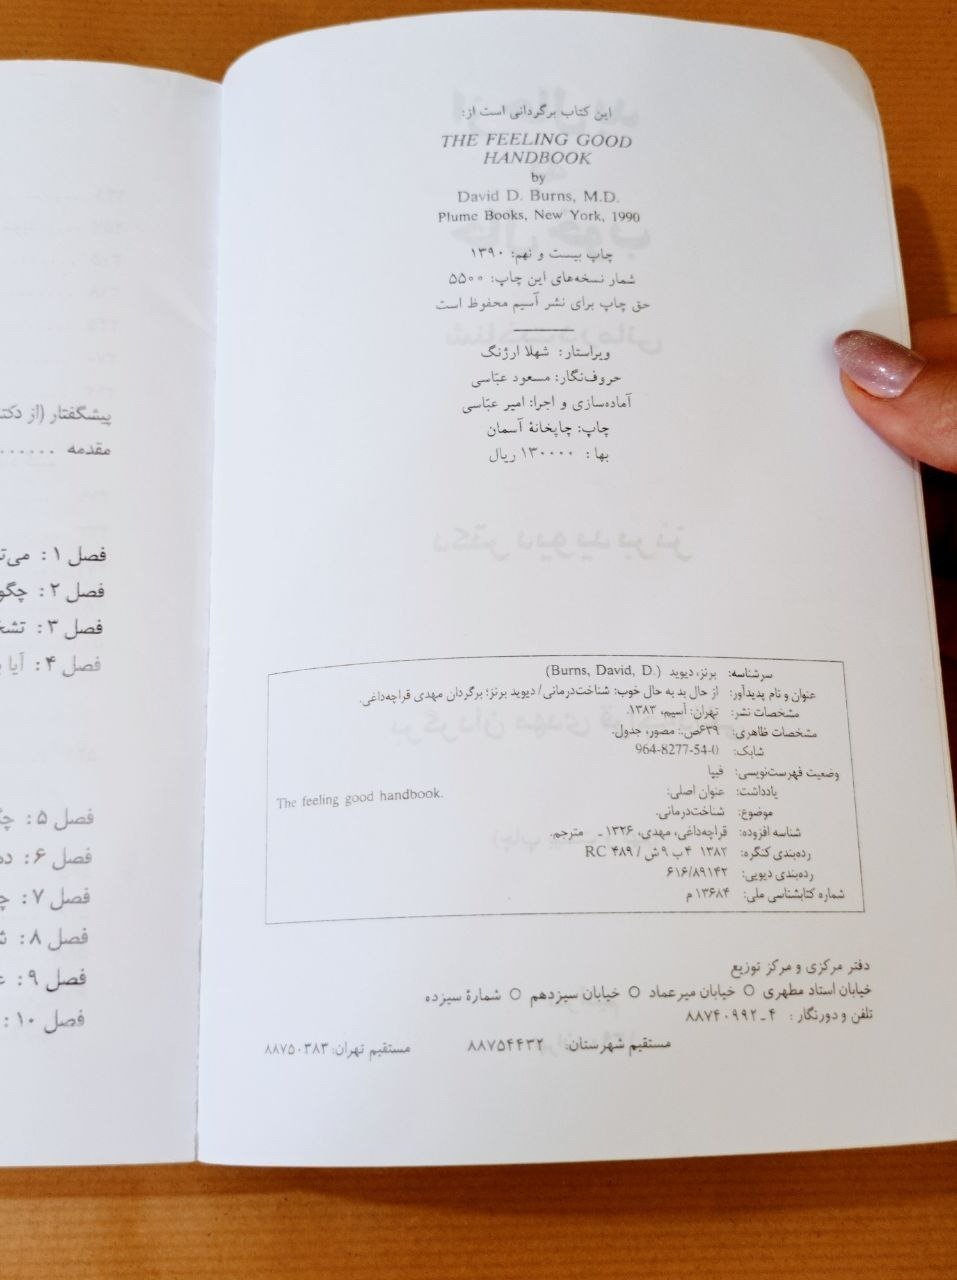 این کتاب برگردانی است از:
THE FEELING GOOD
HANDBOOK
by
David D. Burns, M.D.
Plume Books, New York, 1990
چاپ بیست و نهم: ۱۳۹۰
شمار نسخه‌های این چاپ: ۵۵۰۰
حق چاپ برای نشر آسیم محفوظ است
ویراستار: شهلا ارژنگ
حروف‌نگار: مسعود عبّاسی
آماده‌سازی و اجرا: امیر عبّاسی
چاپ: چاپخانهٔ آسمان
بها: ۱۳۰۰۰۰ ریال
سرشناسه: برنز، دیوید (Burns, David, D.)
عنوان و نام پدیدآور: از حال بد به حال خوب: شناخت‌درمانی/ دیوید برنز؛ برگردان مهدی قراچه‌داغی.
مشخصات نشر: تهران: آسیم، ۱۳۸۳.
مشخصات ظاهری: ۶۳۹ص.: مصور، جدول.
شابک: 964-8277-54-0
وضعیت فهرست‌نویسی: فیپا
یادداشت: عنوان اصلی: The feeling good handbook.
موضوع: شناخت‌درمانی.
شناسه افزوده: قراچه‌داغی، مهدی، ۱۳۲۶ ـ مترجم.
رده‌بندی کنگره: ۱۳۸۲ ۴ب ۹ش / ۴۸۹ RC
رده‌بندی دیویی: ۶۱۶/۸۹۱۴۲
شماره کتابشناسی ملی: ۱۳۶۸۴ م
دفتر مرکزی و مرکز توزیع
خیابان استاد مطهری ○ خیابان میرعماد ○ خیابان سیزدهم ○ شمارهٔ سیزده
تلفن و دورنگار: ۴ـ۸۸۷۴۰۹۹۲
مستقیم شهرستان: ۸۸۷۵۴۴۳۲ مستقیم تهران: ۸۸۷۵۰۳۸۳
پیشگفتار (از دکت
مقدمه ......
فصل ۱: می‌ت
فصل ۲: چگو
فصل ۳: تشخ
فصل ۴: آیا
فصل ۵: چگ
فصل ۶:
فصل ۷: چ
فصل ۸:
فصل ۹:
فصل ۱۰: